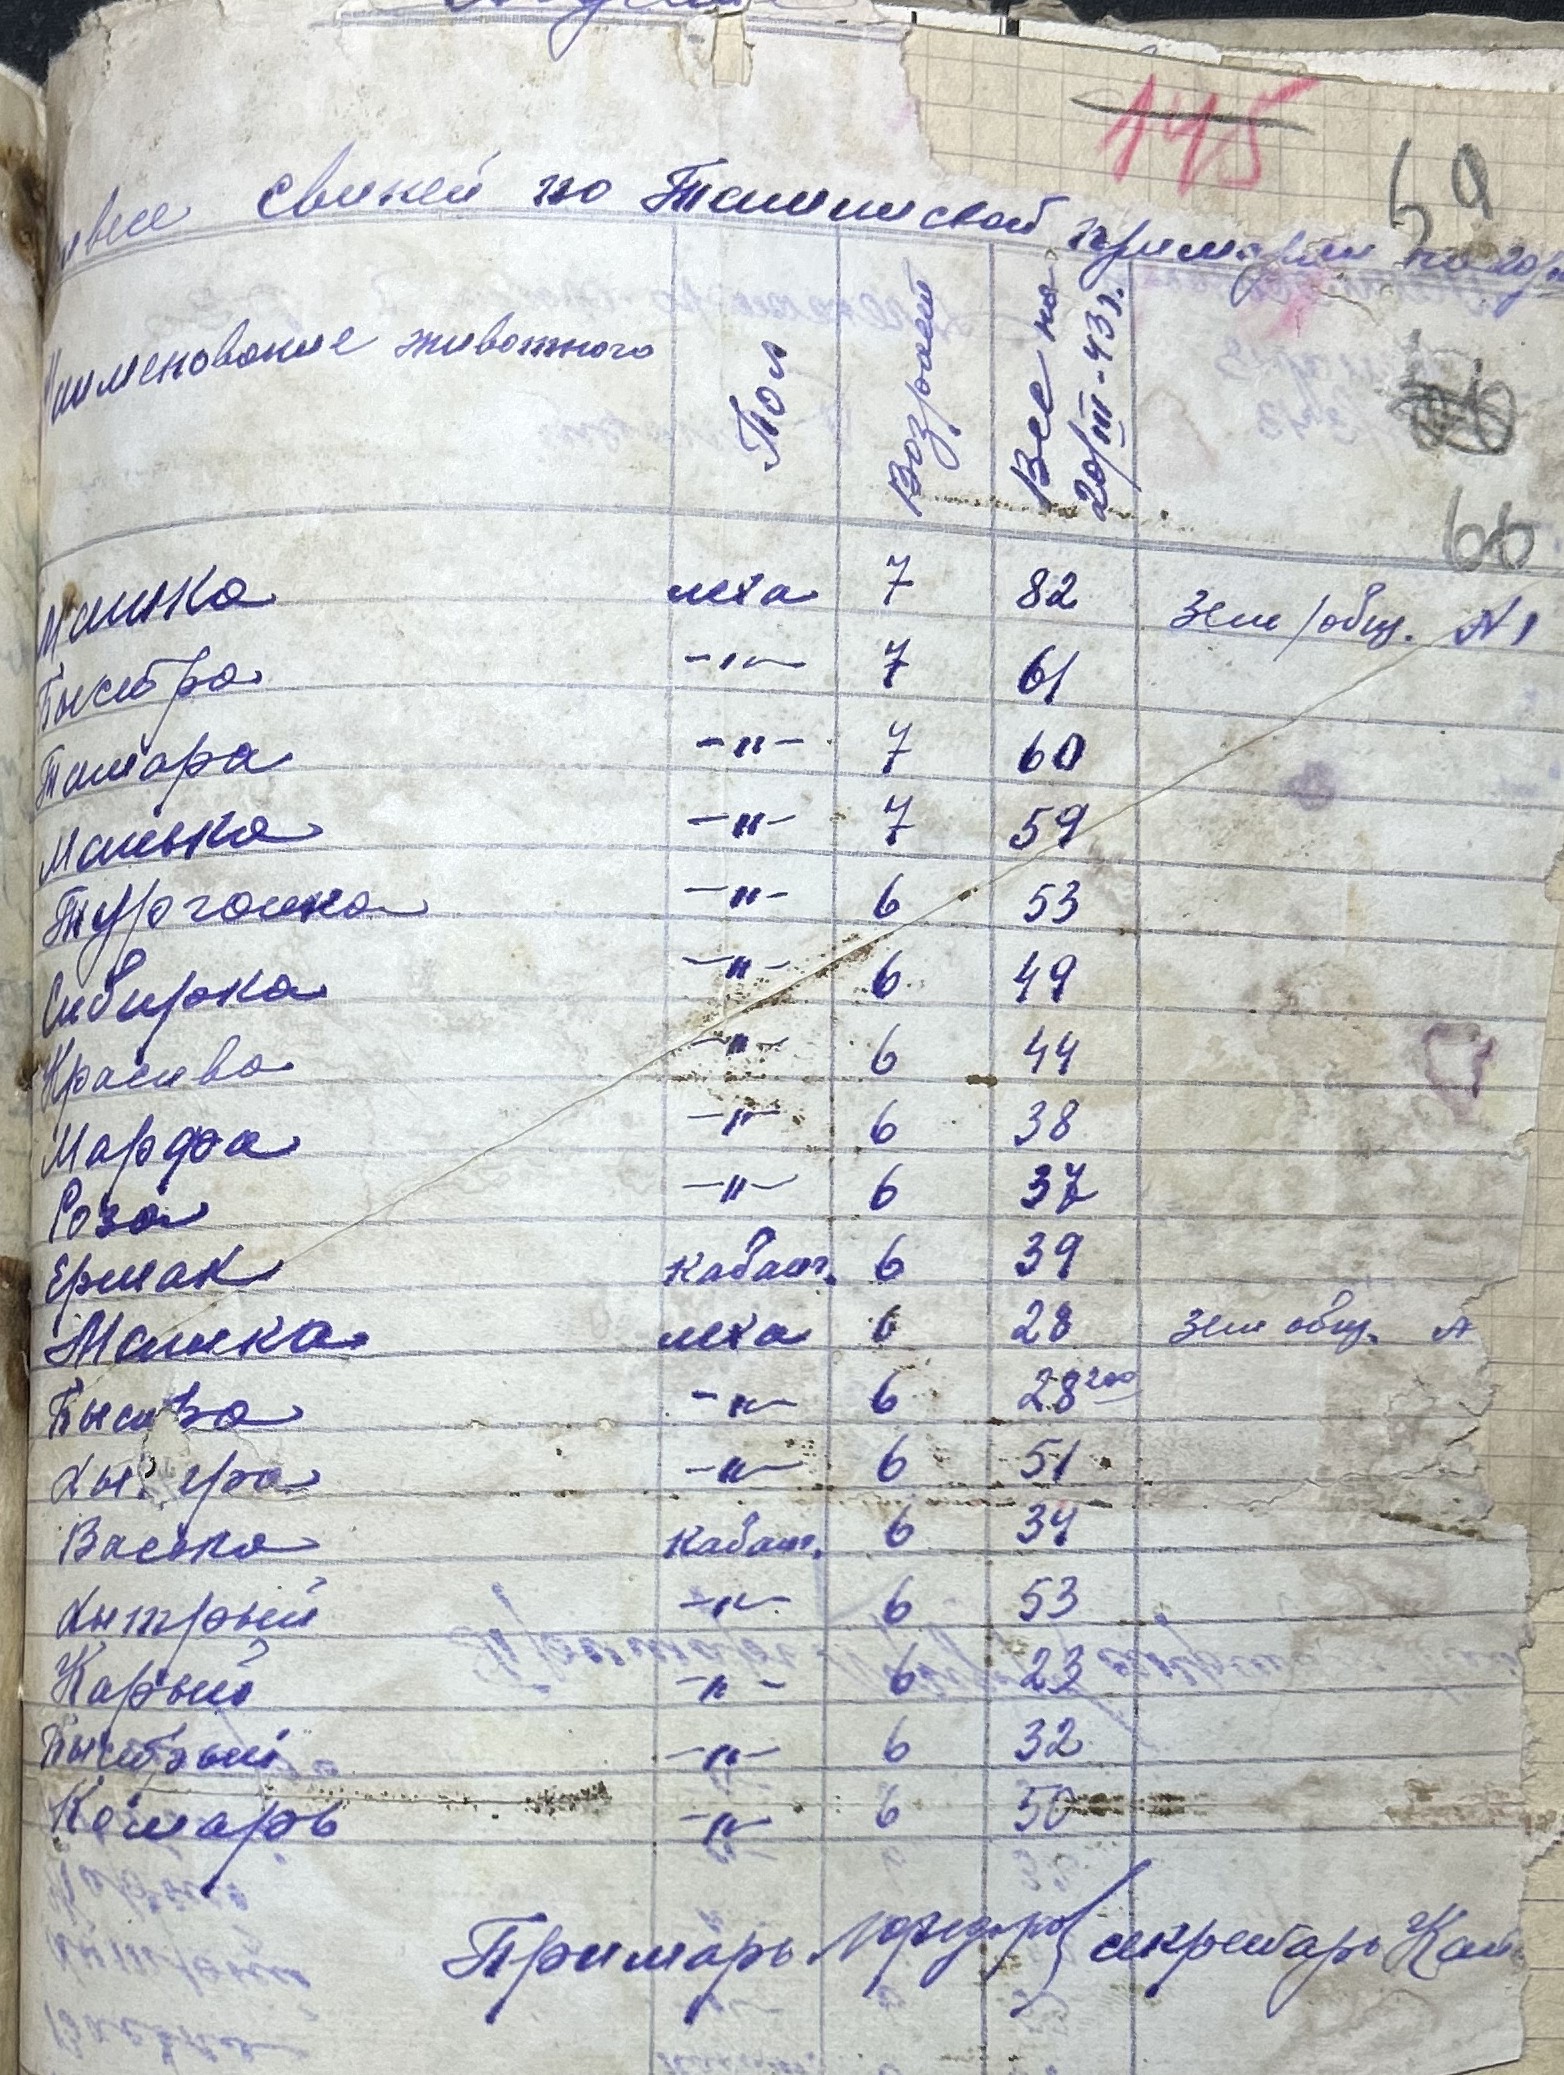 145
69
свиней по Ташинской примарии на 20/
Наименование животного Пол Возраст Вес на 20/III-43 г.
66
Машка леха 7 82 Зем/общ. N1
Быстра -"- 7 61
Тамара -"- 7 60
Манька -"- 7 59
-"- 6 53
Сибирка -"- 6 49
Красива -"- 6 44
Марфа -"- 6 38
Роза -"- 6 37
Ермак Кабан. 6 39
Машка леха 6 28 Зем общ.
-"- 6 28 200
-"- 6 51
Васька Кабан. 6 34
Хытрый -"- 6 53
Карый -"- 6 23
Быстрый -"- 6 32
Комарь -"- 6 50
Примарь секретарь